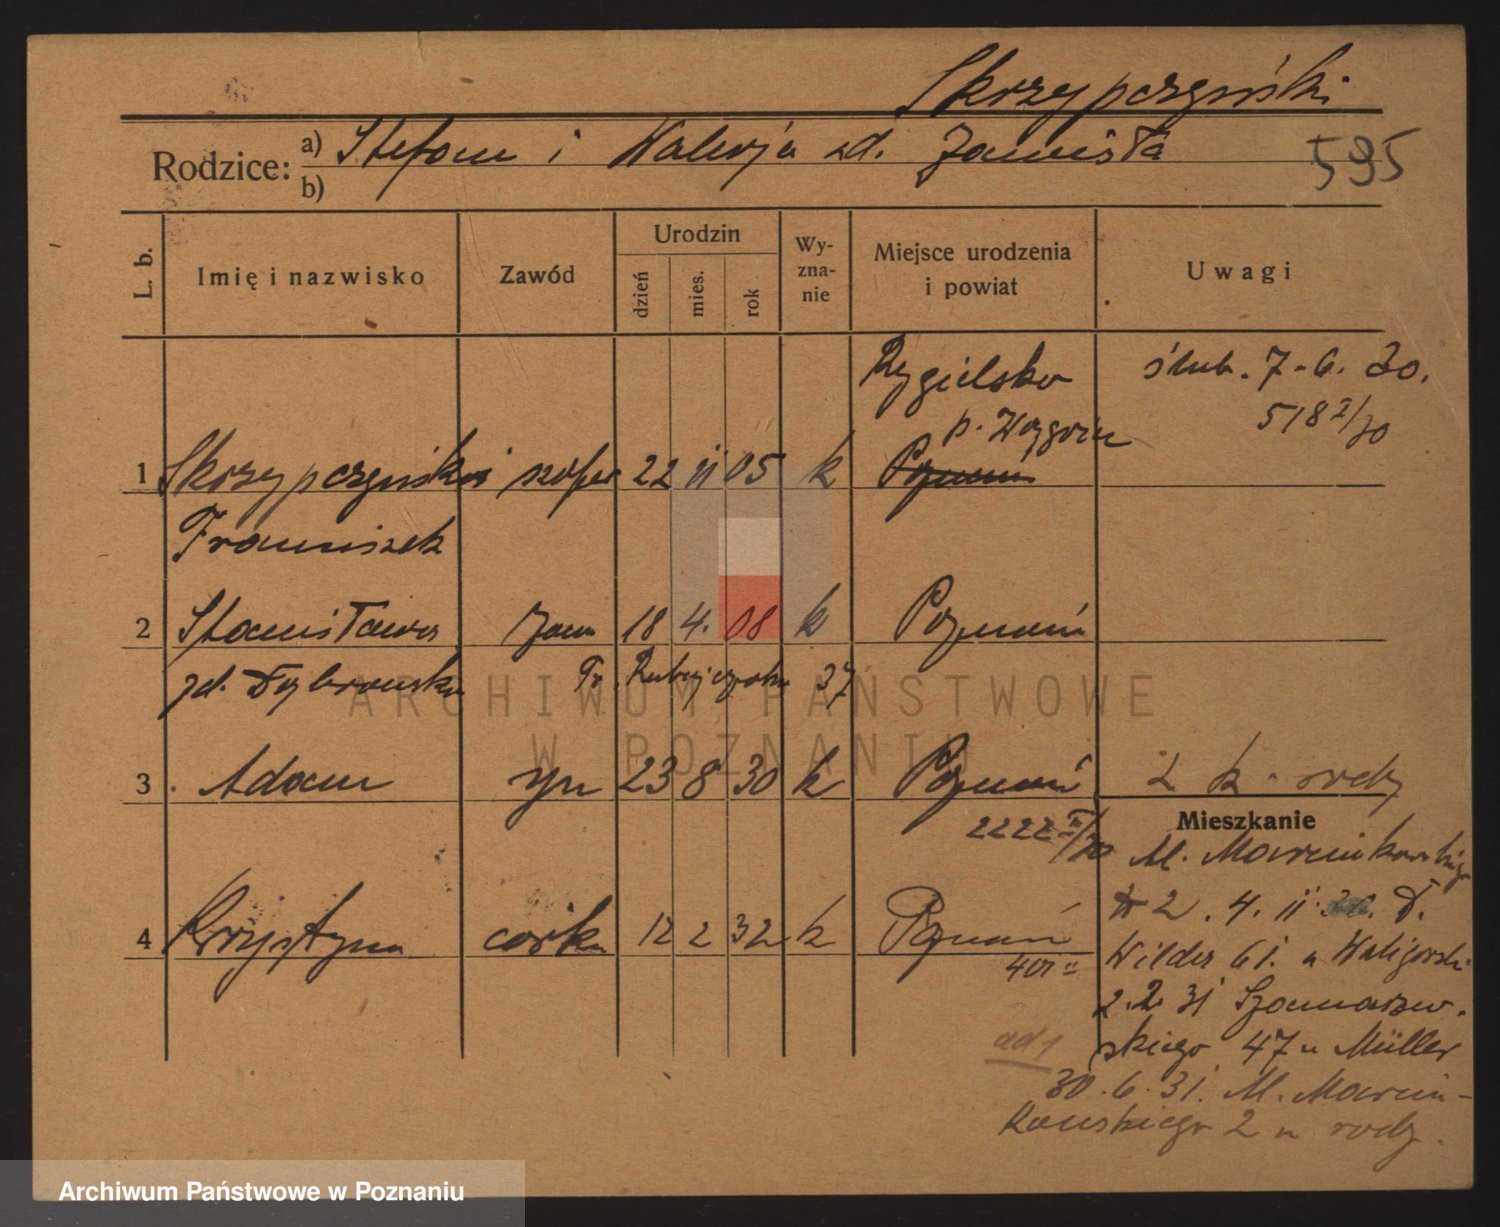 Skrzypczyński
Rodzice: a) Stefan i Walerja zd.
b)
595
L. b.
Imię i nazwisko
Zawód
Urodzin
dzień
mies.
rok
Wy-
zna-
nie
Miejsce urodzenia
i powiat
Uwagi
Rygielsko
p. Wągrow
ślub. 7-6. 30.
518 I/30
1 Skrzypczyński szofer 22 11 05 k Poznań
Franciszek
2 Stanisława żona 18 4. 08 k Poznań
zd. Dąbrowska
37
3 Adam syn 23 8 30 k Poznań
2 k. rodz
2222 II/30
Mieszkanie
M. Marcinkowskiego
2. 4. 11. 30. D.
4 Krystyna córka 12 2 32 k Poznań
401 II
Wilda 61. u Waligórski
2. 2. 31 Szamarzew-
skiego 47 u Müller
ad 1
30. 6. 31. M. Marcin-
kowskiego 2 u rodz.
ARCHIWUM PAŃSTWOWE
W POZNANIU
Archiwum Państwowe w Poznaniu